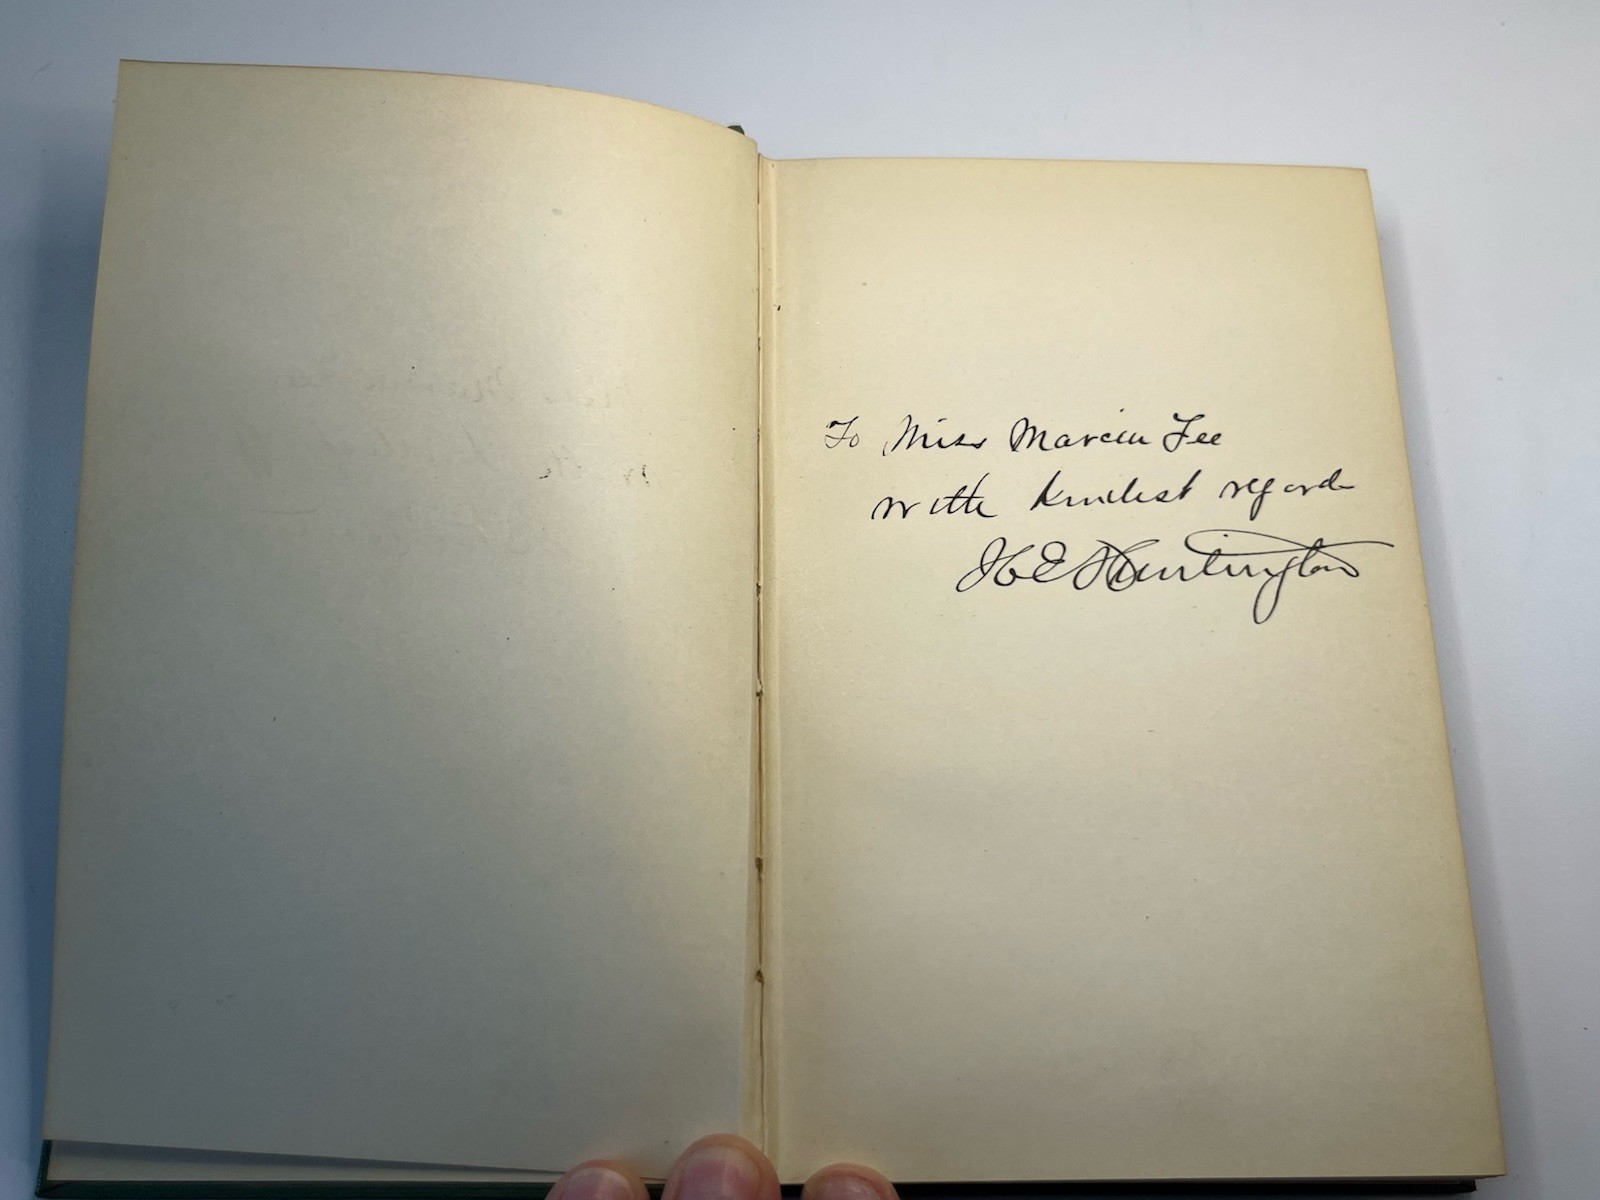 To Miss Marcia Lee
with kindest regards
H E Huntington